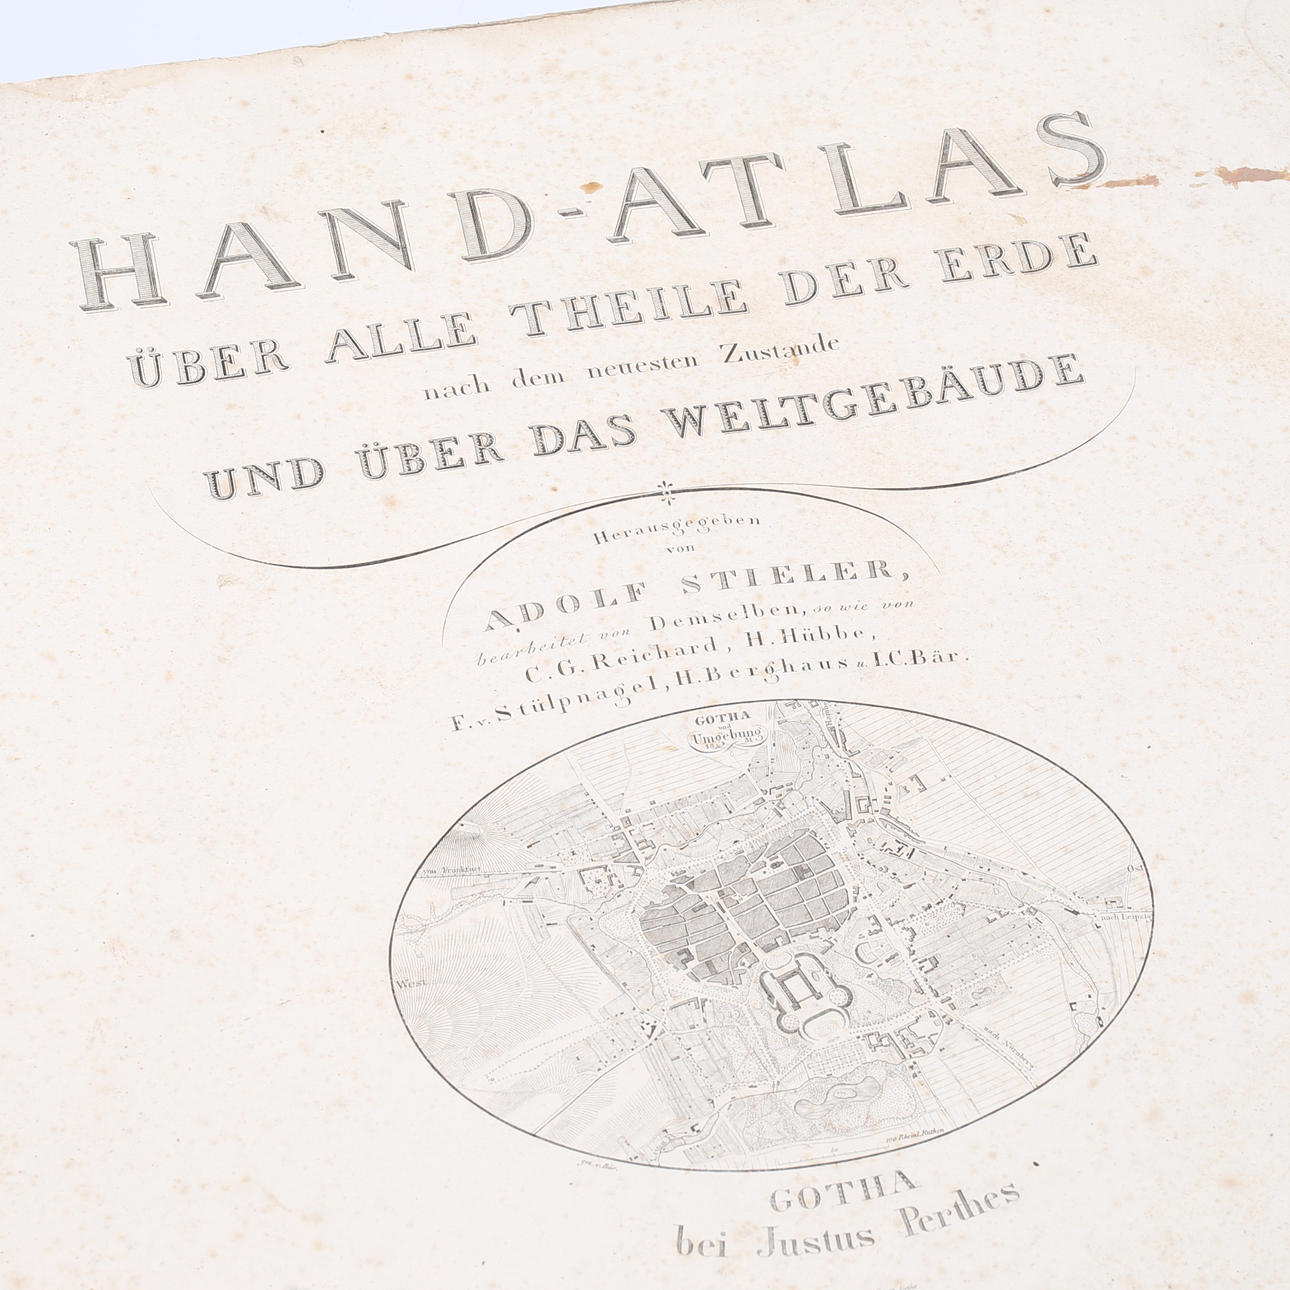 HAND-ATLAS
ÜBER ALLE THEILE DER ERDE
nach dem neuesten Zustande
UND ÜBER DAS WELTGEBÄUDE
Herausgegeben
von
ADOLF STIELER,
bearbeitet von Demselben, so wie von
C.G. Reichard, H. Hübbe,
F. v. Stülpnagel, H. Berghaus u. I.C. Bär.
GOTHA
und
Umgebung
von Frankfurt
Ost
nach Leipzig
West
nach Nürnberg
100 Rheinl. Ruthen
GOTHA
bei Justus Perthes